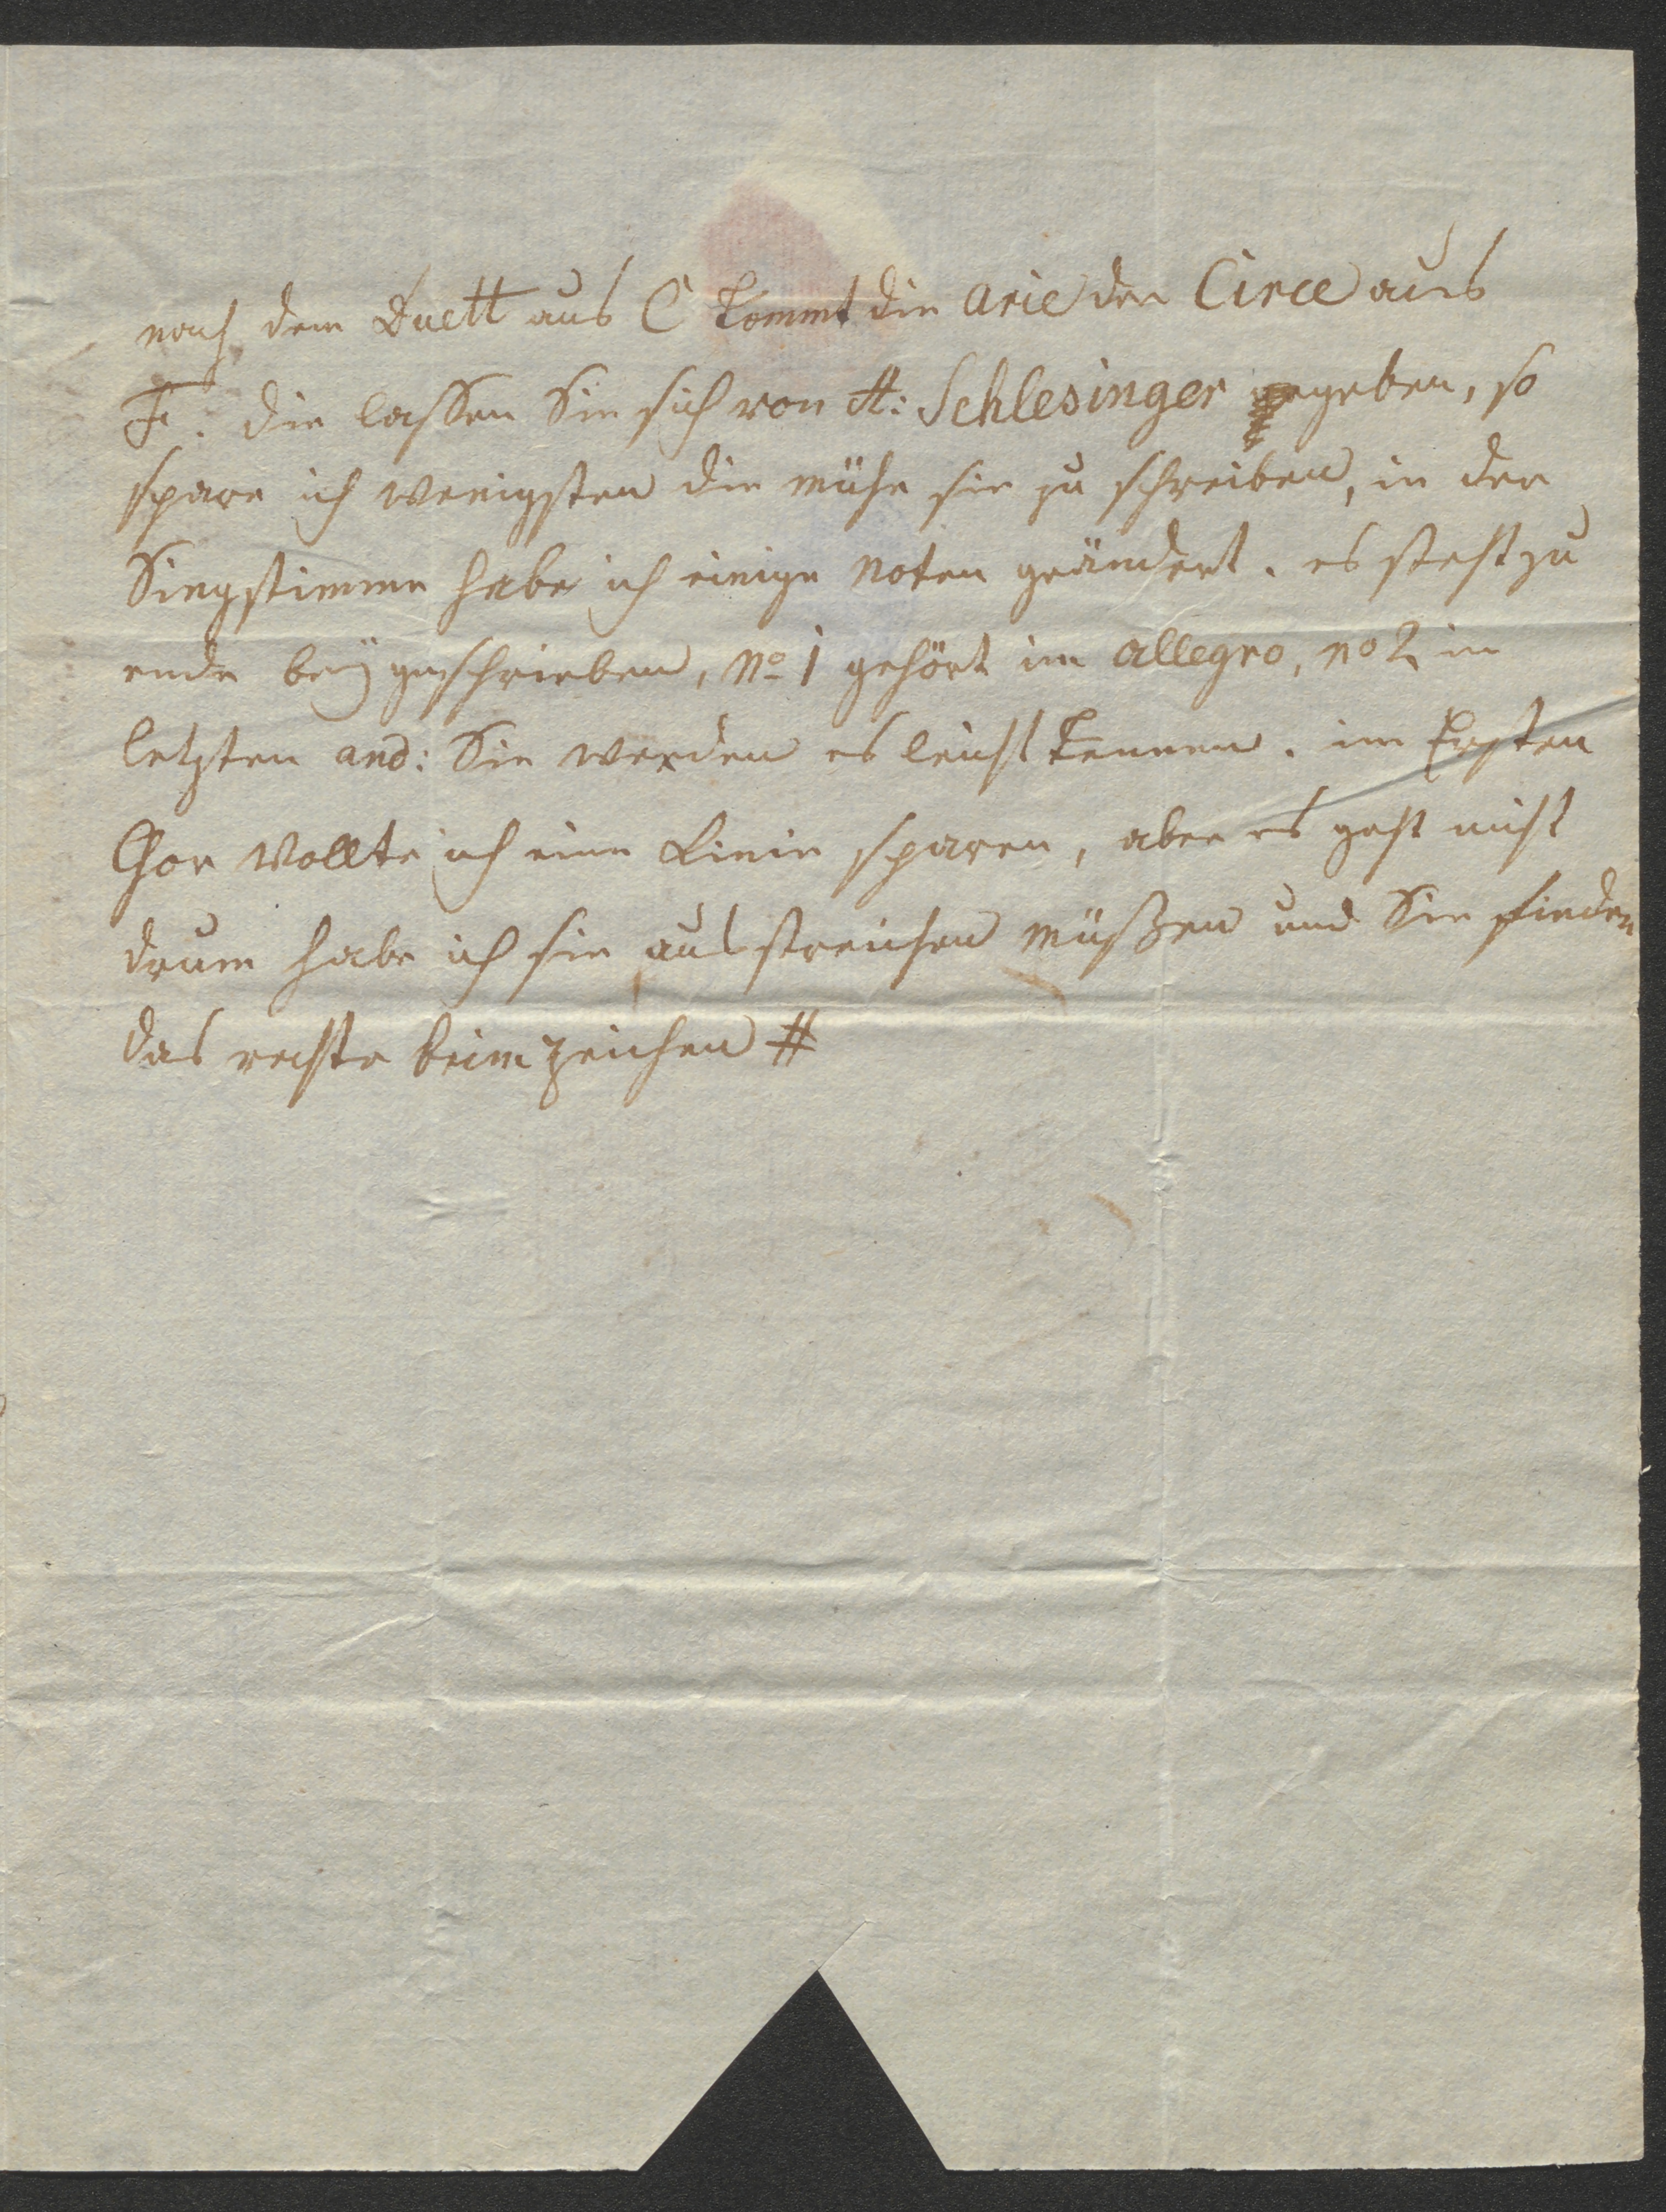 nach dem Duett aus C kommt die Arie der Circe aus
F. die lassen Sie sich von H: Schlesinger gegeben, so
spare ich wenigsten die mühe sie zu schreiben, in der
Singstimme habe ich einige Noten geändert. es steht zu
ende beÿ geschrieben, No 1 gehört im allegro, no 2 im
letzten and: Sie werden es leicht kennen. im Ersten
Chor wollte ich eine Linie sparen, aber es geht nicht
drum habe ich sie ausstreichen müßen und Sie finden
das rechte beim zeichen #